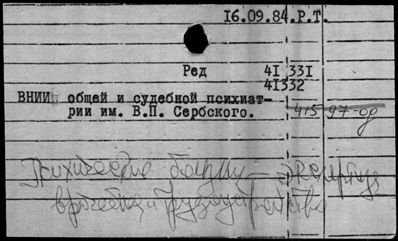 16.09.84.Р.Т.
Ред 41 331
41332
ВНИИ общей и судебной психиат-
рии им. В.П. Сербского. 415-97-09
Психические больны
врачебная трудоустройства